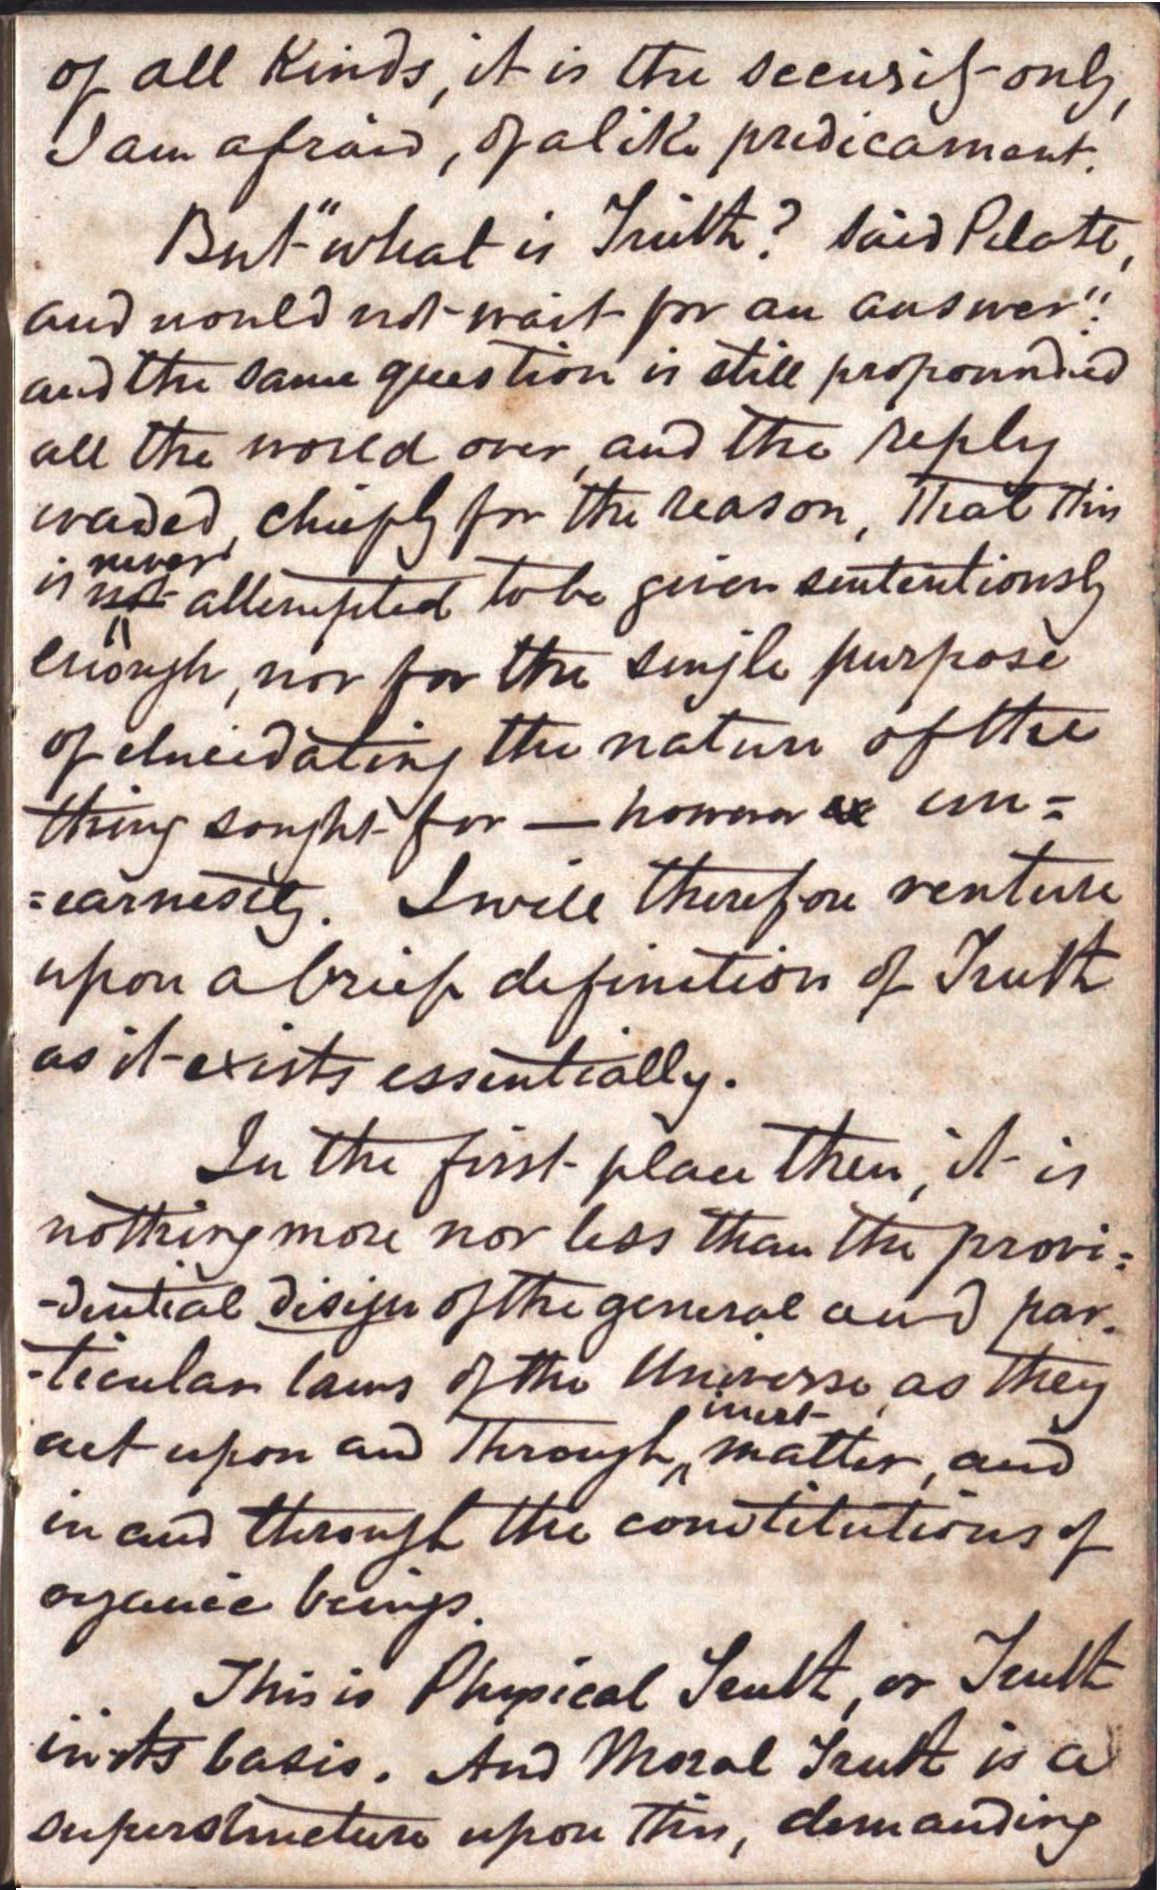 of all Kinds, it is the security only,
I am afraid, of a like predicament.
But "what is Truth? said Pilate,
and would not wait for an answer":
and the same question is still propounded
all the world over, and the reply
evaded, chiefly for the reason, that this
is never not attempted to be given sententiously
enough, nor for the single purpose
of elucidating the nature of the
thing sought for — however un=
=earnestly. I will therefore venture
upon a brief definition of Truth
as it exists essentially.
In the first place then, it is
nothing more nor less than the provi=
-dential design of the general and par-
-ticular laws of the Universe, as they
act upon and through inert matter, and
in and through the constitutions of
organic beings.
This is Physical Truth, or Truth
in its basis. And Moral Truth is a
superstructure upon this, demanding